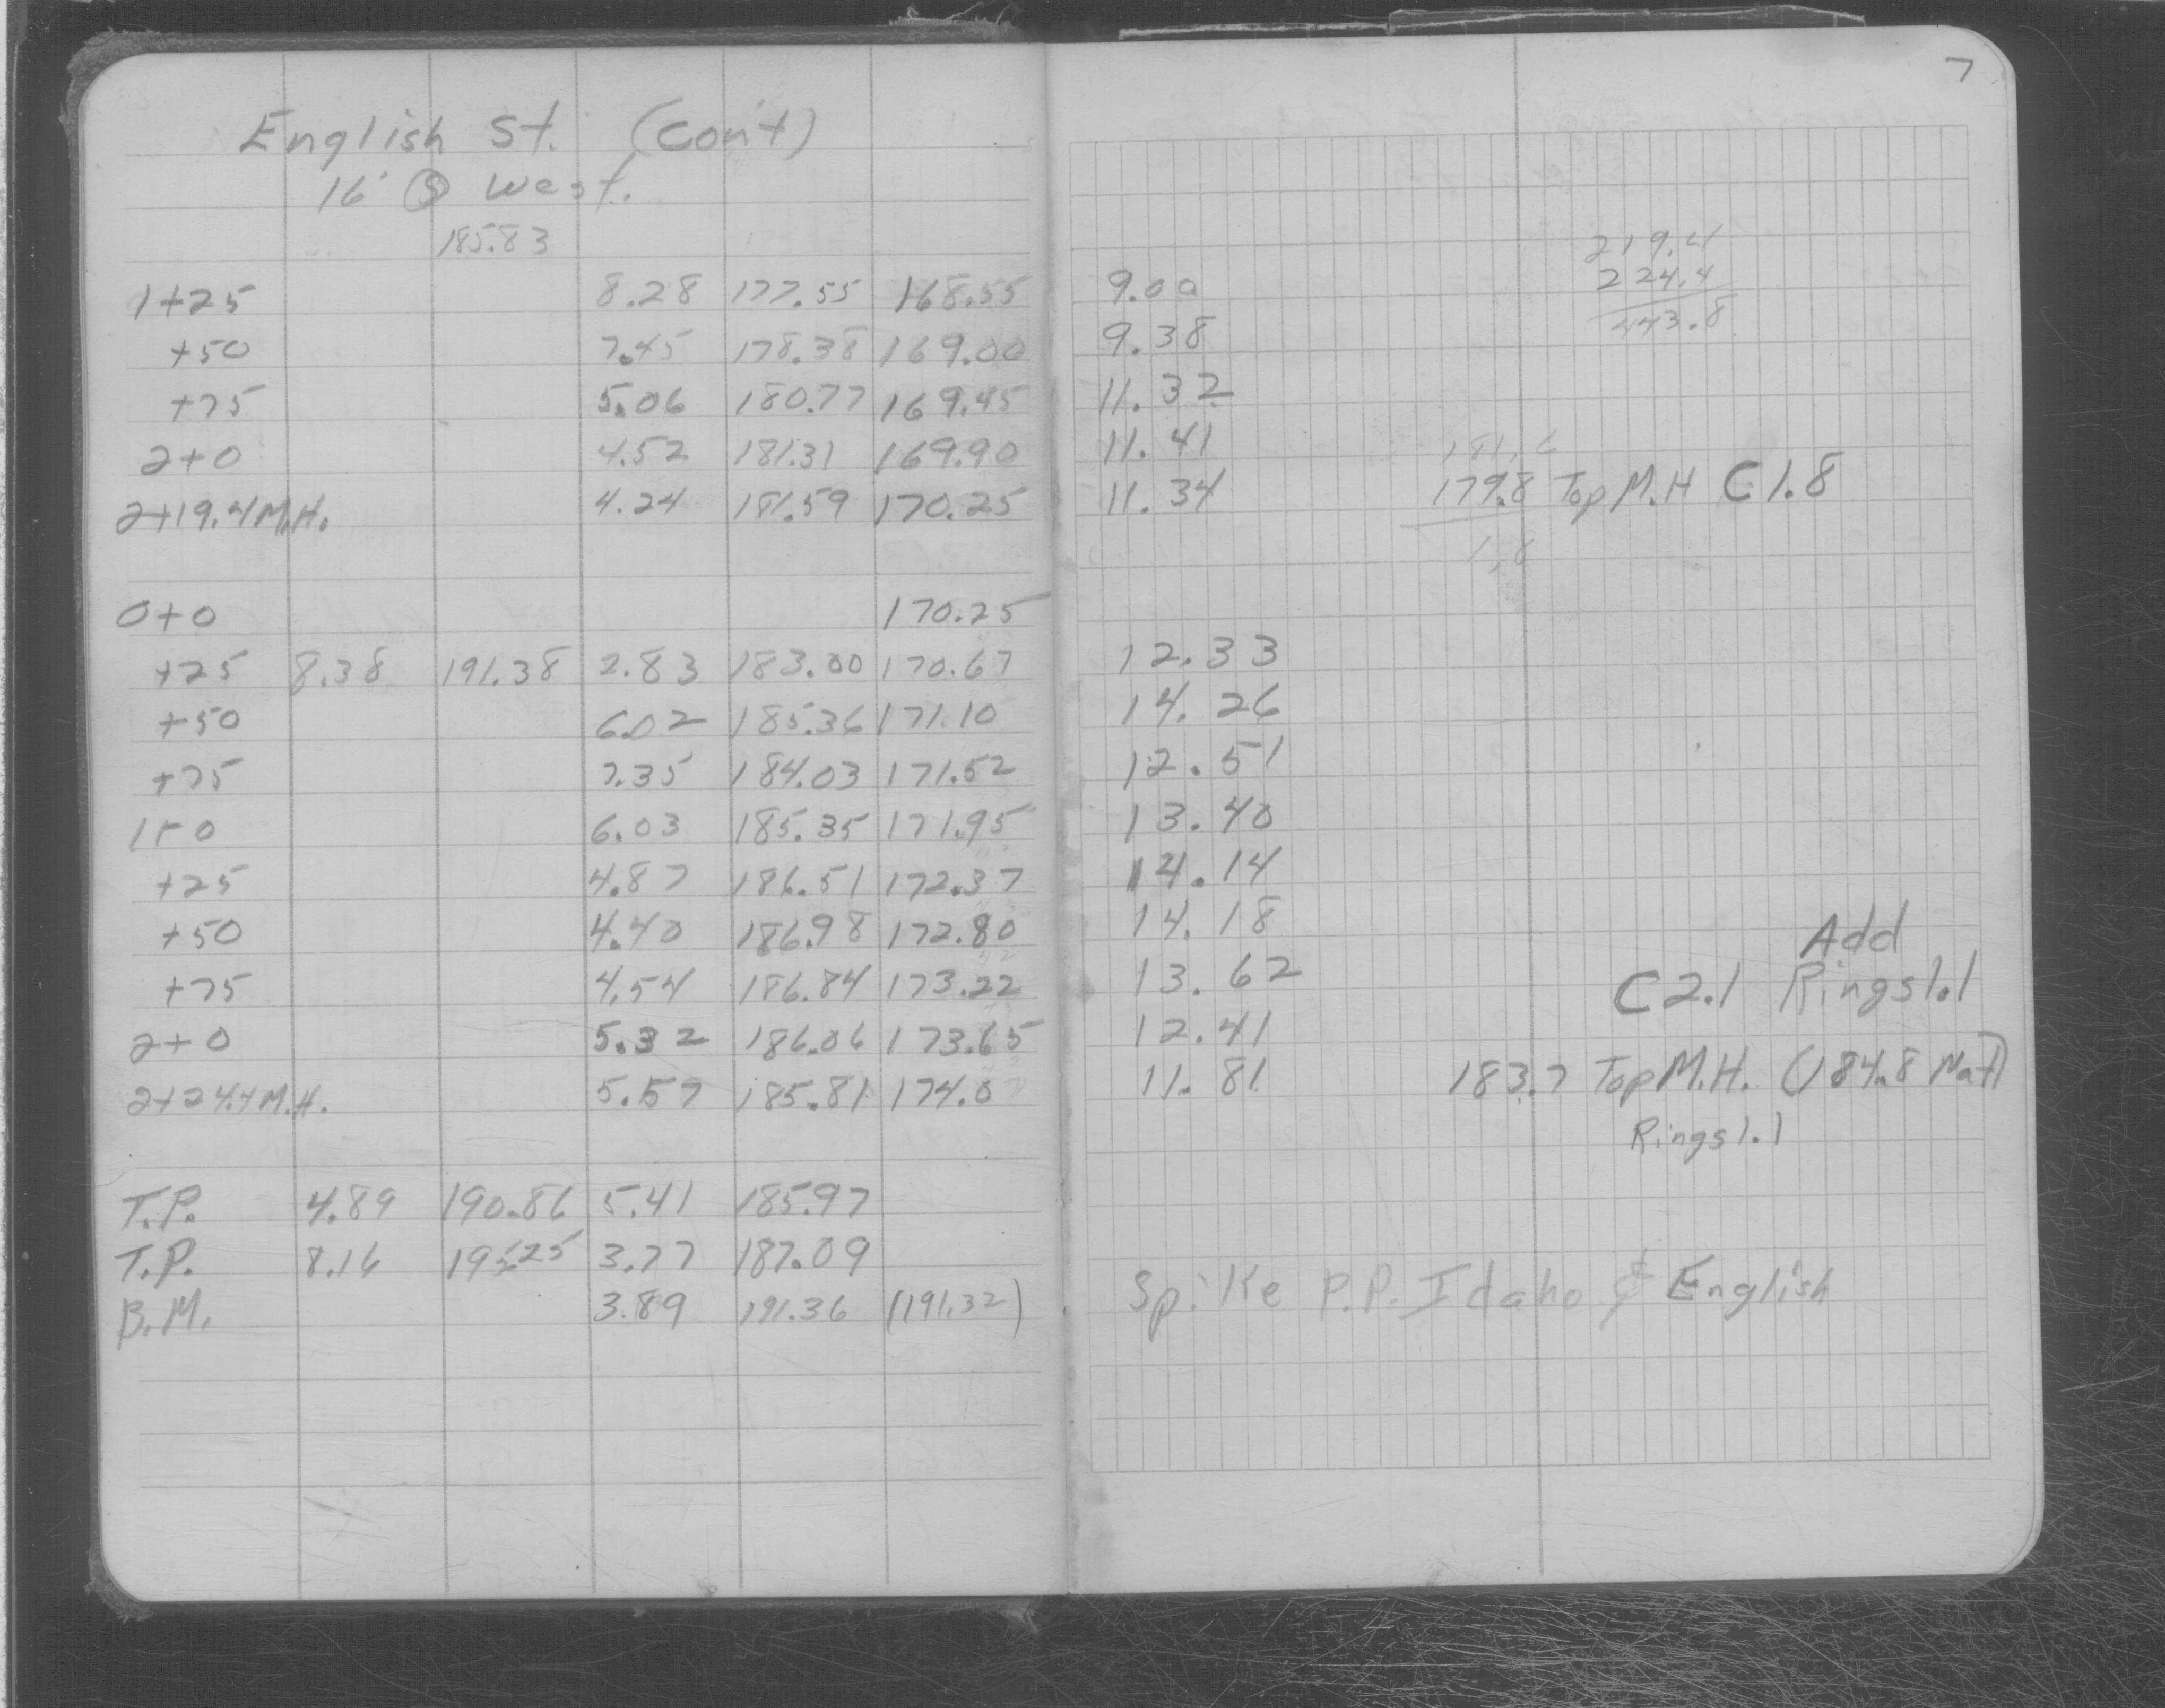 7
English St. (Con't)
16' Ⓢ West.
185.83
219.4
224.4
443.8
1+25 8.28 177.55 168.55 9.00
+50 7.45 178.38 169.00 9.38
+75 5.06 180.77 169.45 11.32
2+0 4.52 181.31 169.90 11.41
181.6
2+19.4 M.H. 4.24 181.59 170.25 11.34 179.8 Top M.H C 1.8
1.8
0+0 170.25
+25 8.38 191.38 2.83 183.00 170.67 12.33
+50 6.02 185.36 171.10 14.26
+75 7.35 184.03 171.52 12.51
1+0 6.03 185.35 171.95 13.40
+25 4.87 186.51 172.37 14.14
+50 4.40 186.98 172.80 14.18 Add
+75 4.54 186.84 173.22 13.62 C 2.1 Rings 1.1
2+0 5.32 186.06 173.65 12.41
2+24.4 M.H. 5.57 185.81 174.0 11.81 183.7 Top M.H. (184.8 Nat)
Rings 1.1
T.P. 4.89 190.86 5.41 185.97
T.P. 8.16 195.25 3.77 187.09
B.M. 3.89 191.36 (191.32) Spike P.P. Idaho & English